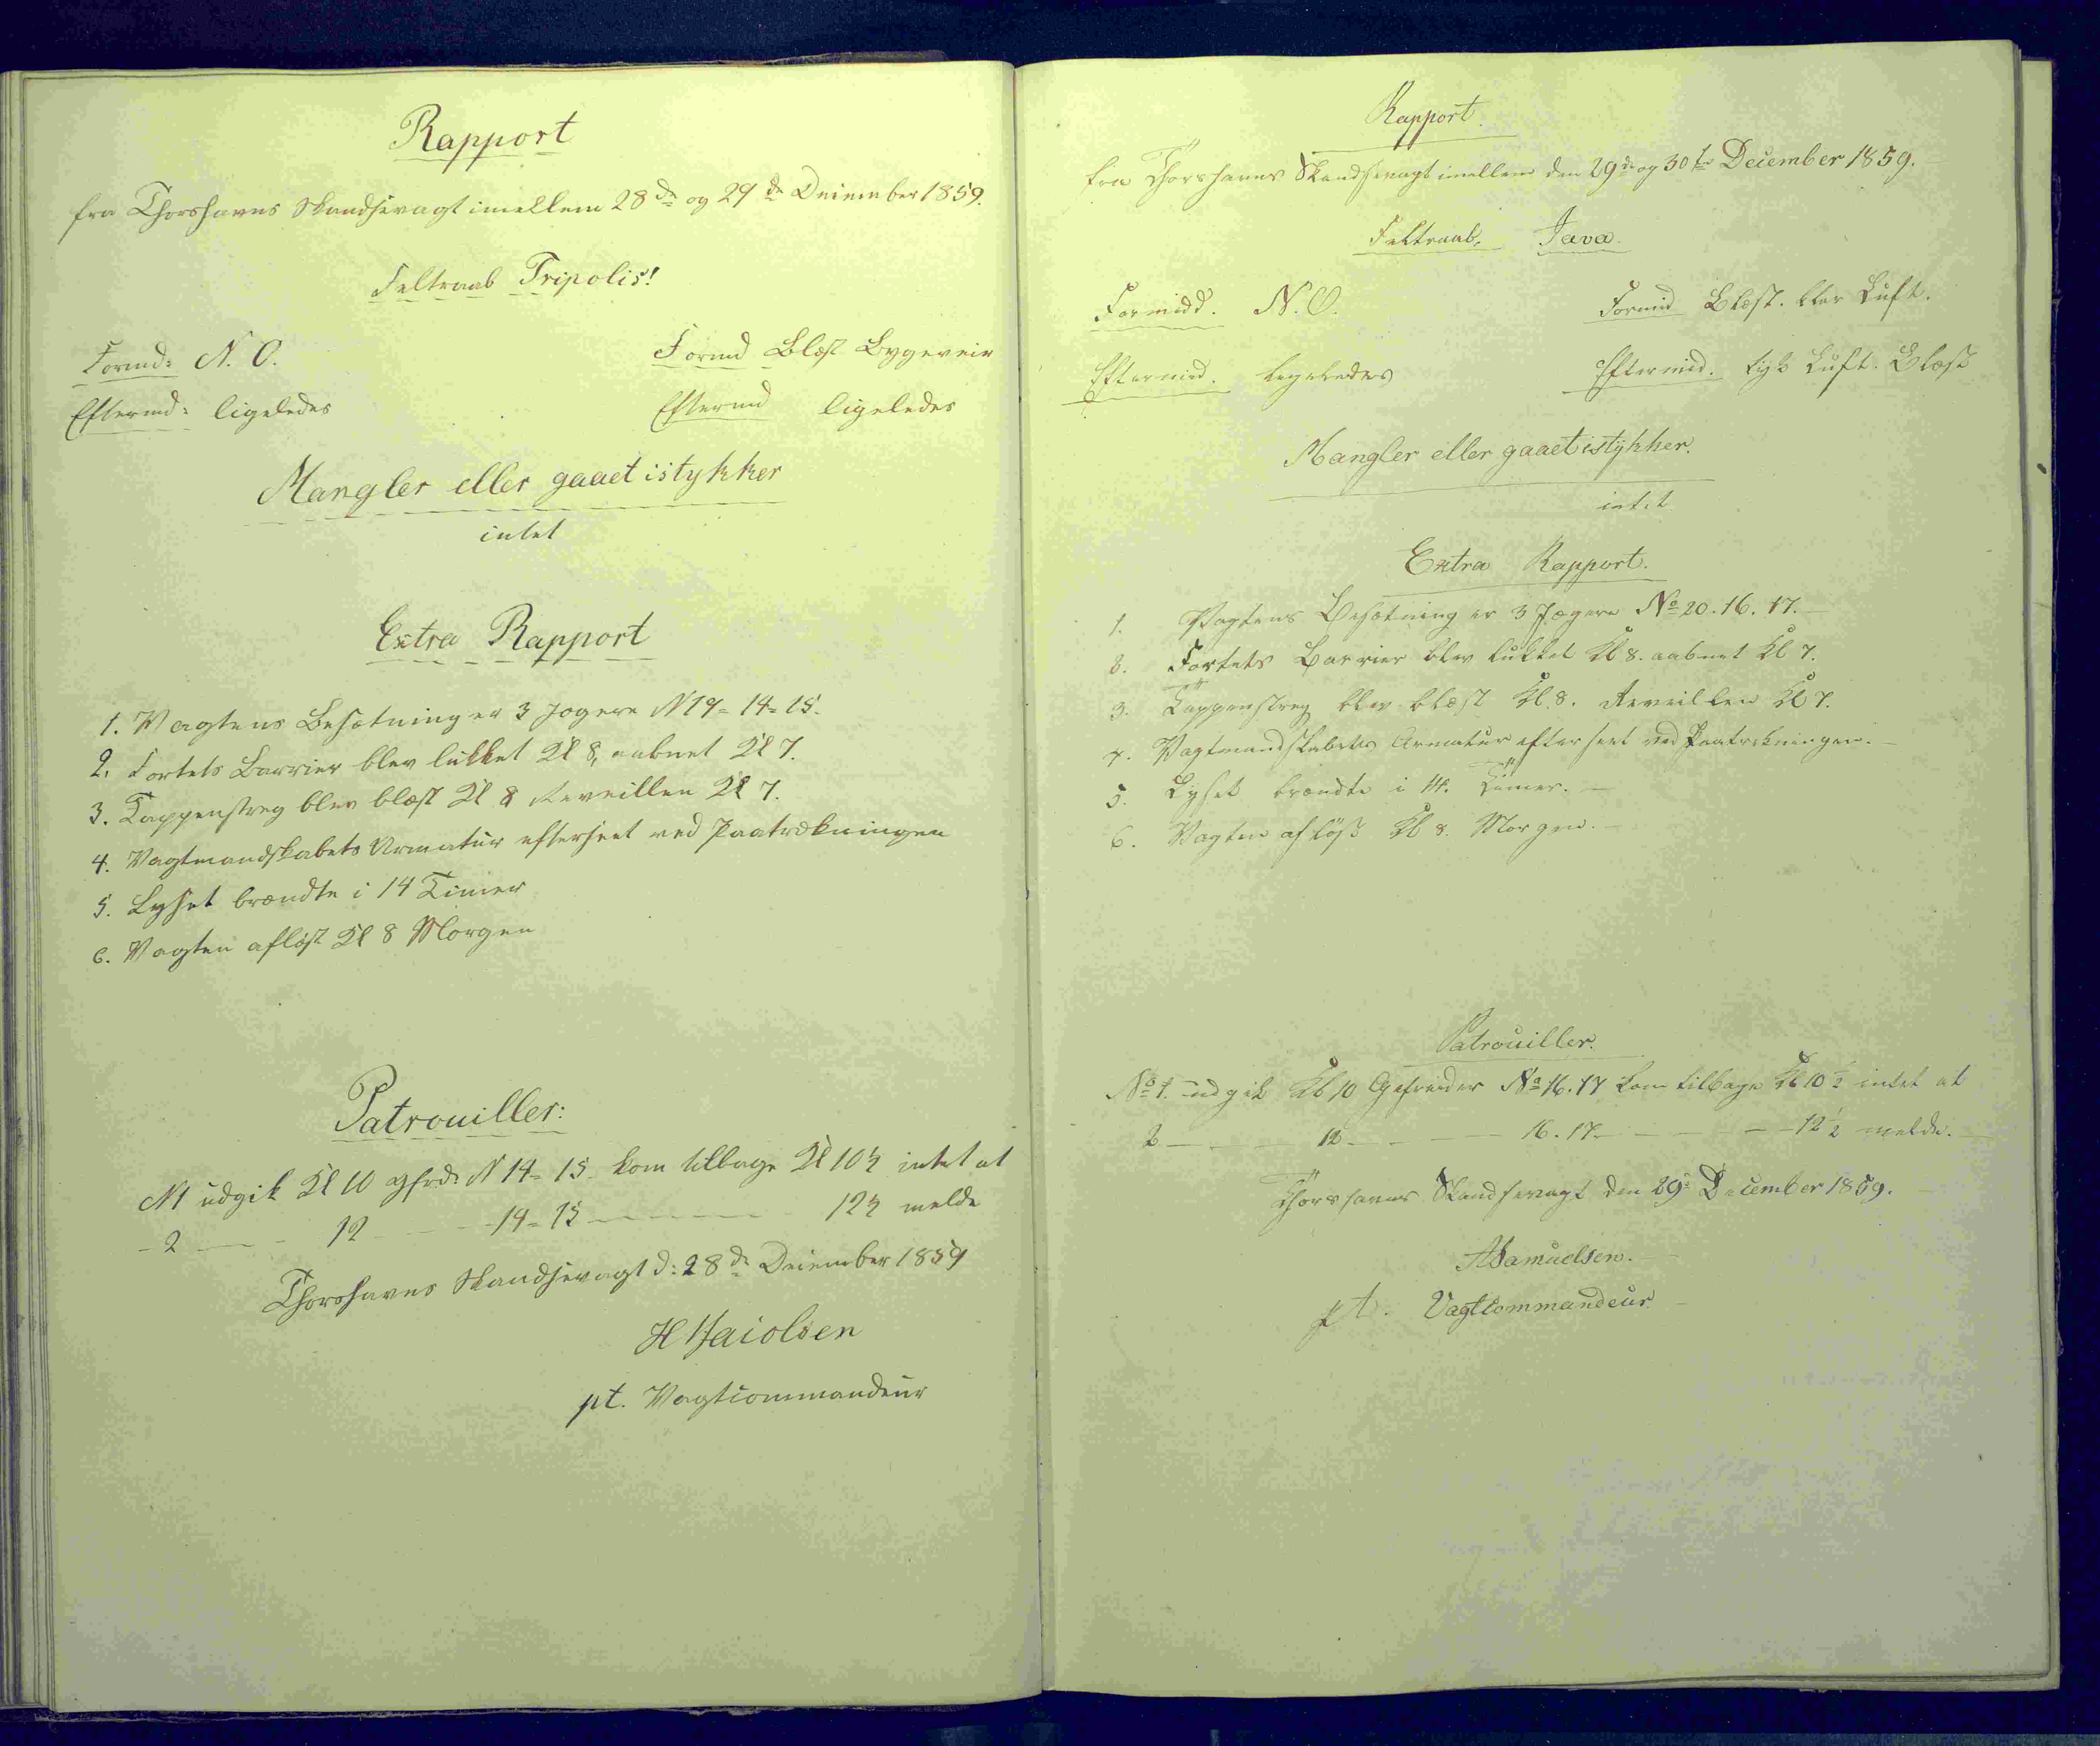 Rapport
fra Thorshavns Skandsevagt imellem 28de og 29de December 1859.
Feltraab Tripolis!
Formd: N. O.
Formd Blæst Bygeveir
Eftermd: ligeledes
Eftermd ligeledes
Mangler eller gaaet istykker
intet
Extra Rapport
1. Vagtens Besætning er 3 Jægere N 19 = 14 = 15.
2. Fortets Barrier blev lukket Kl 8, aabnet Kl 7.
3. Tappenstreg blev blæst Kl 8 Reveillen Kl 7.
4. Vagtmandskabets Armatur efterseet ved Paatrækningen
5. Lyset brændte i 14 Timer
6. Vagten afløst Kl 8 Morgen
Patrouiller:
N1 udgik Kl 10 Gfrd: N 14 = 15 kom tilbage Kl 10½ intet at
- 2 — - 12 - — - 14 = 15 — — — 12½ melde
Thorshavns Skandsevagt d: 28de December 1859
H
pt. Vagtcommandeur
Rapport.
fra Thorshavns Skandsevagt imellem den 29de og 30te December 1859.
Feltraab, Java.
Formidd. N. O.
Formid Blæst. klar Luft.
Eftermid. ligeledes
Eftermid. tyk Luft. Blæst
Mangler eller gaaet istykker.
intet
Extra Rapport.
1. Vagtens Besætning er 3 Jægere No 20. 16. 17. —
2. Fortets Barrier blev lukket Kl 8. aabnet Kl 7.
3. Tappenstreg blev blæst Kl. 8. Reveillen Kl 7.
4. Vagtmandskabets Armatur efterseet ved Paatrækningen. —
5. Lyset brændte i 14. Timer. —
6. Vagten afløst Kl 8. Morgen. —
Patrouiller.
No 1. udgik Kl 10 Gefreider No 16. 17 kom tilbage Kl 10½ intet at
2 — — 12 — — — 16. 17 — — — — 12½ melde. —
Thorshavns Skandsevagt den 29de December 1859.
Samuelsen. —
pt. Vagtcommandeur. —